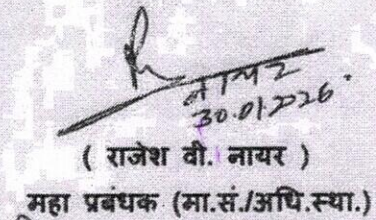 नायर
30.01.2026.
( राजेश वी. नायर )
महा प्रबंधक (मा.सं./अधि.स्था.)